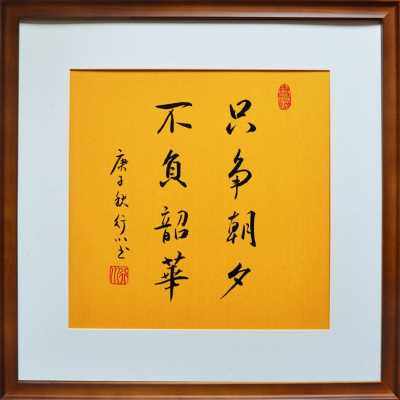 只争朝夕
不负韶華
庚子秋行川书